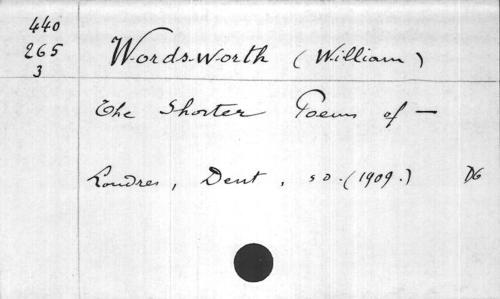 440
265
3
Wordsworth (William)
The Shorter Poems of —
Londres, Dent, s d. (1909.) DG